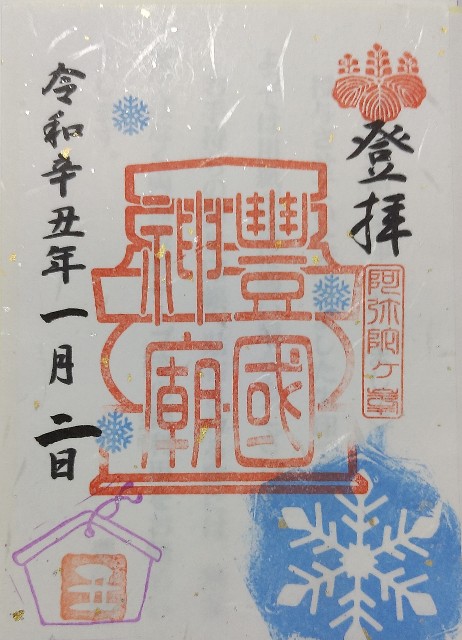 登拝
阿弥陀ヶ峯
豊國
神廟
令和辛丑年一月二日